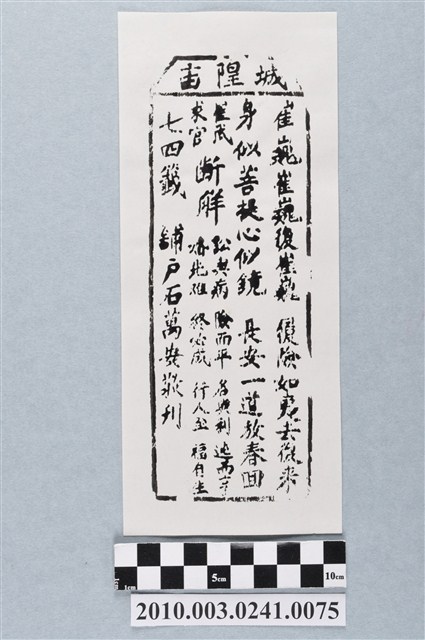 城隍庙
崔巍崔巍復崔巍 履險如夷去復來
身似菩提心似鏡 長安一道放春回
崔武求官
斷解
訟與病 險而平 名與利 進而亨
婚 終必成 行人至 福自生
七四籤 鋪戶石萬發敬刊
5cm
10cm
1cm
2010.003.0241.0075